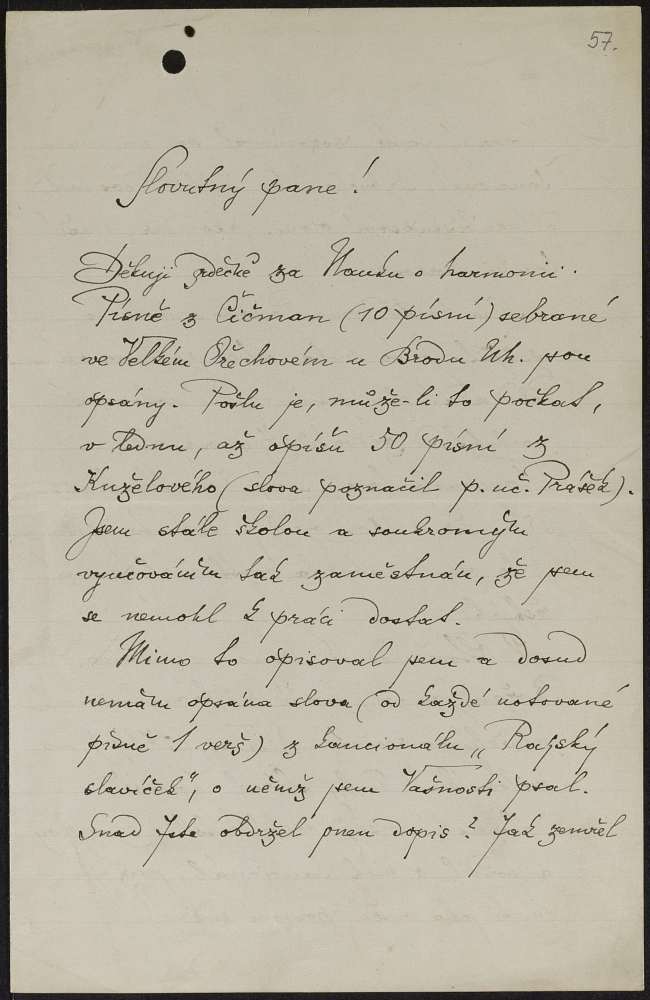 57.
Slovutný pane!
Děkuji srdečně za Nauku o harmonii.
Písně z Čičman (10 písní) sebrané
ve Velkém Ořechovém u Brodu Uh. jsou
opsány. Pošlu je, může-li to počkat,
v lednu, až opíšu 50 písní z
Kuželového (slova poznačil p. uč. Prášek).
Jsem stále školou a soukromým
vyučováním tak zaměstnán, že jsem
se nemohl k práci dostat.
Mimo to opisoval jsem a dosud
nemám opsána slova (od každé notované
písně 1 verš) z kancionálu „Rajský
slavíček", o němž jsem Vašnosti psal.
Snad jste obdržel dopis? Jak zemřel